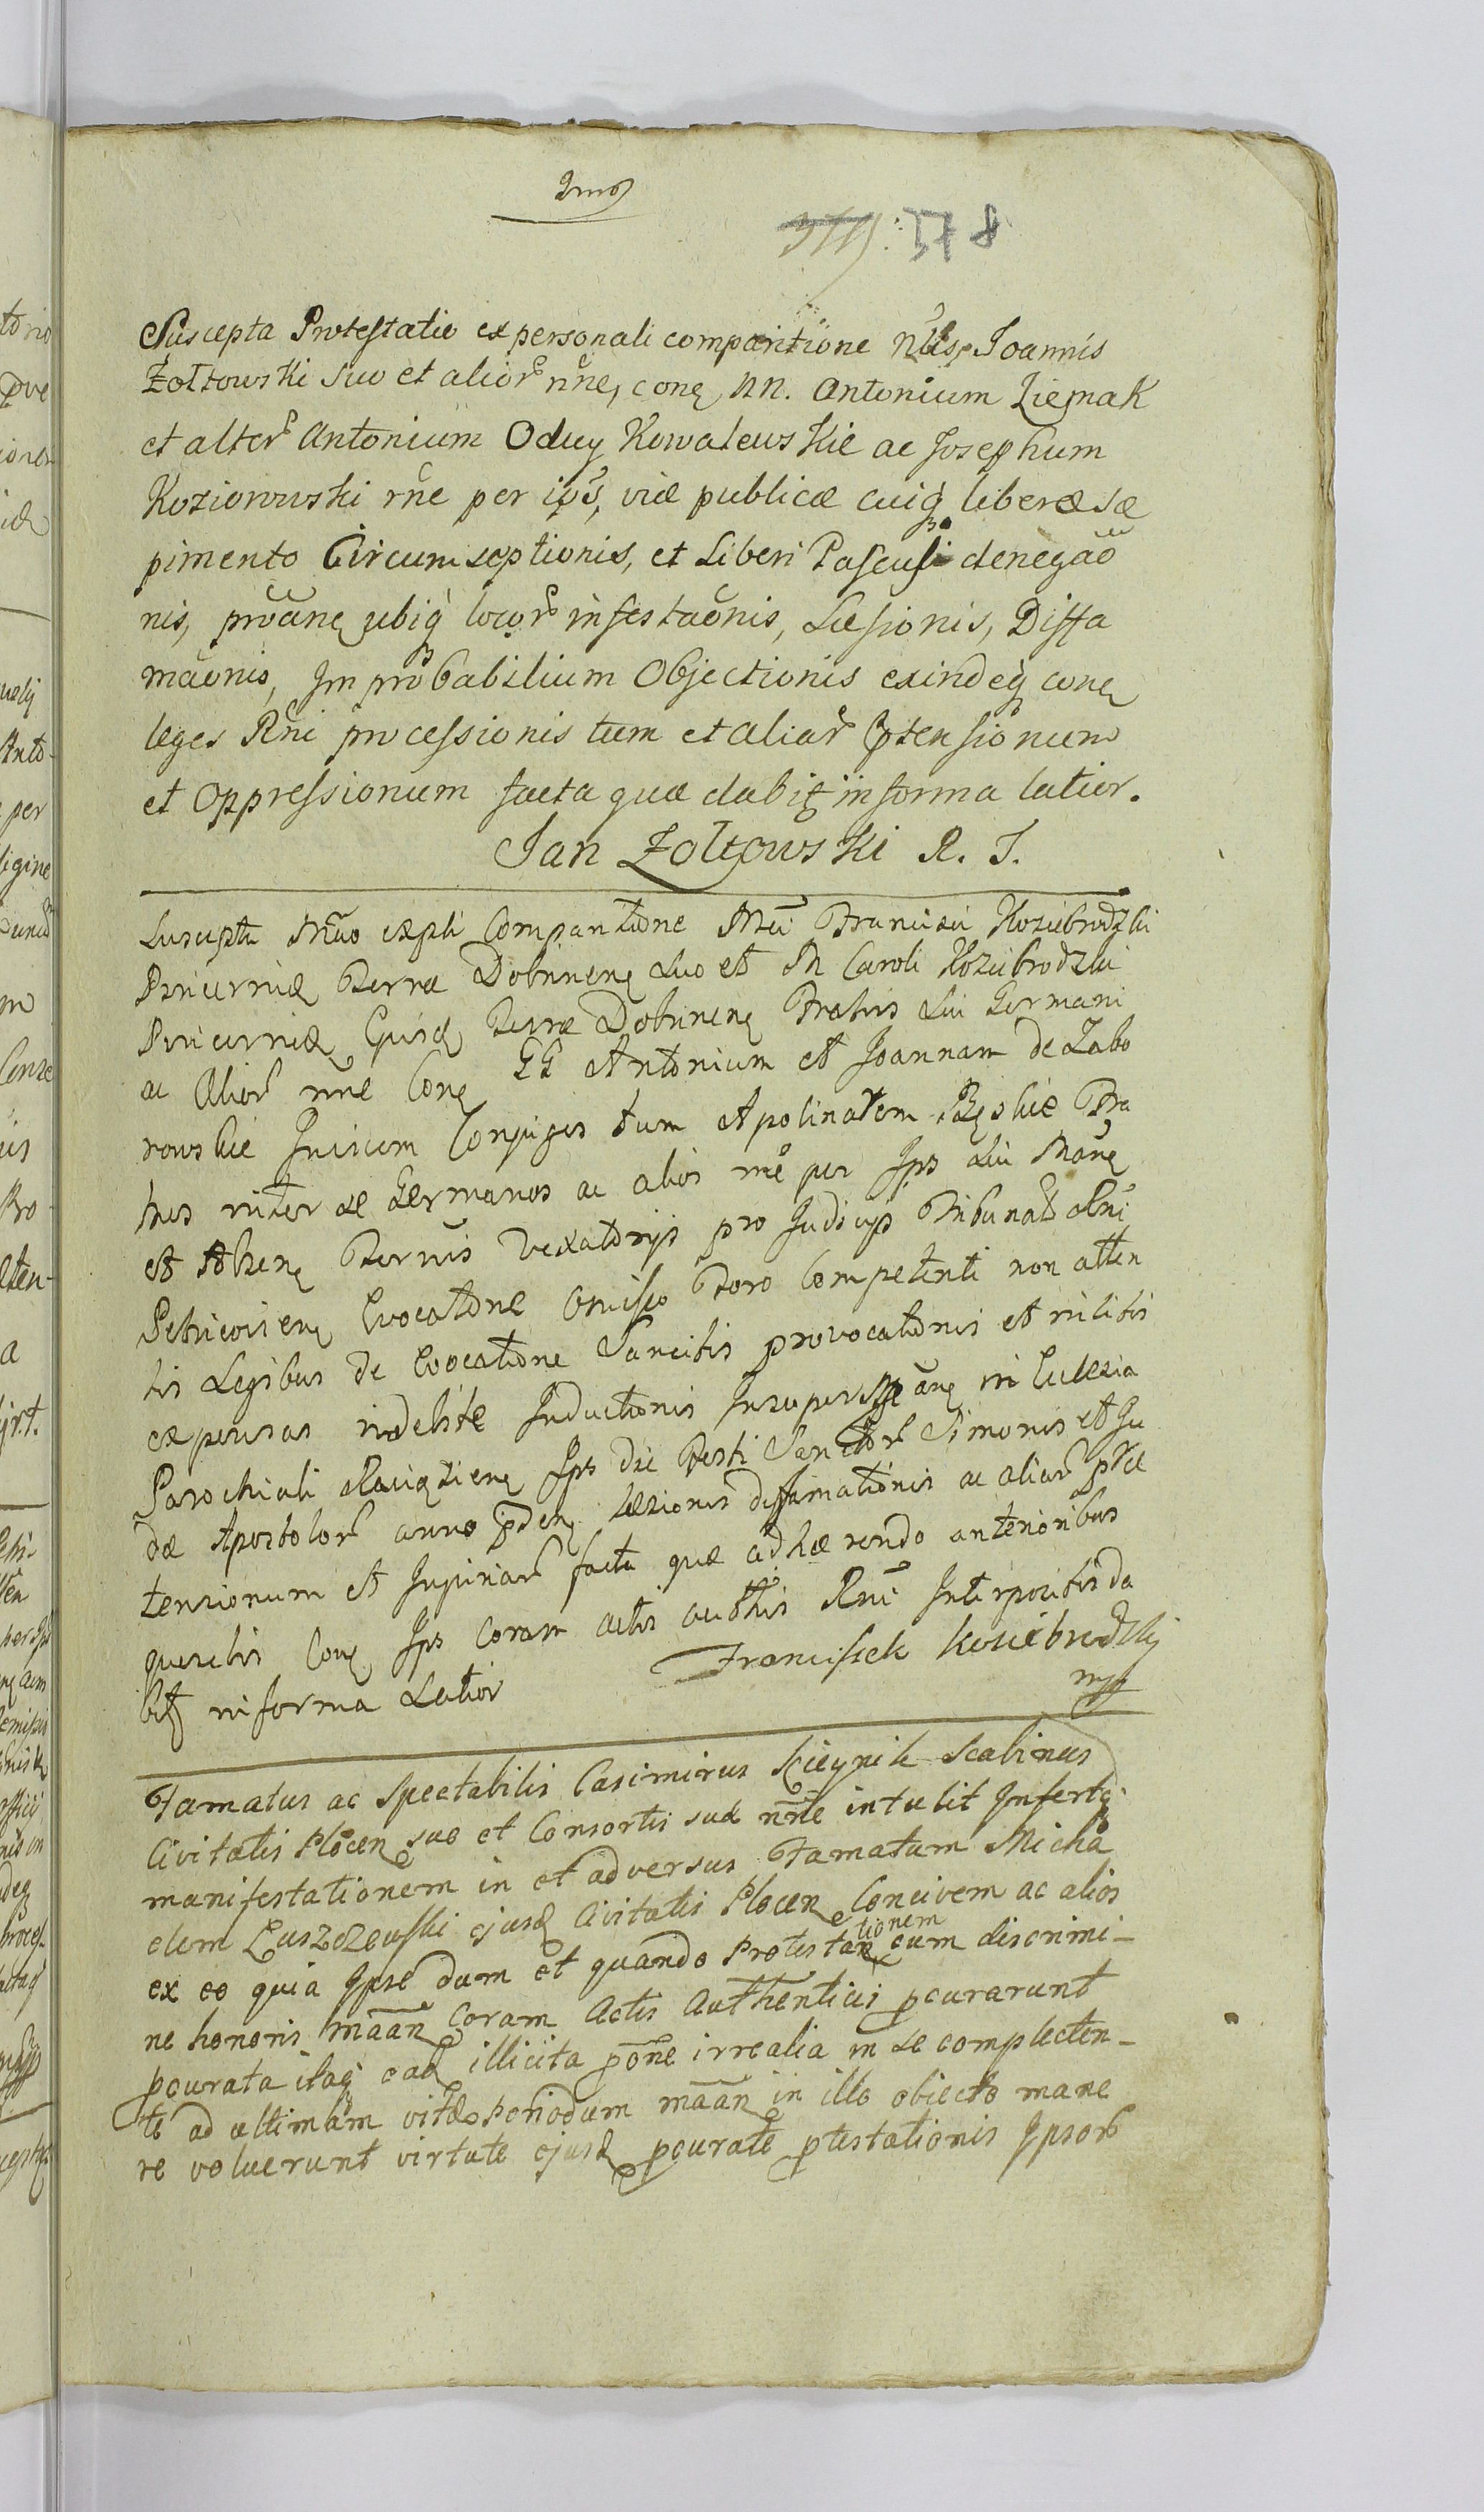 578
Suscepta Protestatio ex personali comparitione Joannis
Żołtowski suo et alior̃ nñe, conȩ NN. Antonium Ziemak
et alter̃ Antonium Oduy Kowalewskie ac Josephum
Kozionowski rñe per ipõs, viæ publicæ cuiq̀ liberæ sæ
pimento Circumseptionis, et Liberi Pascusi denegaõ
nis, ubiq̀ locor̃ infestaõnis, Læsionis, Diffa
maõnis, Improbabilium Objectionis exindeq̀ conȩ
leges Rñi processionis tum et aliar̃ ptensionum
et Oppressionum facta quæ dabit̨ in forma latior.
Jan Żołtowski R. J.
Suscepta Mão expli Comparitione Mci Francisci Koziebrodzki
Pincernæ Terræ Dobrinenȩ suo et M Caroli Koziebrodzki
Pincernæ Ejusd Terræ Dobrinenȩ Fratris sui Germani
ac Alior̃ nñe Conȩ GG Antonium et Joannam de Zabo
rowskie Invicem Conjuges tum Apolinarem Bȩskie Fra
tres inter se Germanos ac alios rñe per Ips sui
et Terris vexatorijs pro Judicijs Tribunal Rñi
Petricovienȩ Evocatione Omisso Foro Competenti non atten
tis Legibus de Evocatione Sancitis provocationis et in litis
expensas indebite Inductionis Insuper in Eclesia
Parochiali Raciązienȩ Ips die Festi Sanctor̃ Simonis et Ju
dæ Apostolor̃ anno læzionis diffamationis ac aliar̃ præ
tensionum et Injuriar̃ facta quæ adhærendo anterioribus
querelis Conȩ Ips Coram actis authis Rñi Interpositis da
bit̨ in forma Latior
Franciszek Koziebrodzki
mp
Famatus ac Spectabilis Casimirus Kieynik Scabinus
Civitatis Plocen suo et Consortis suæ nñe intulit Insertȩ
manifestationem in et adversus Famatum Micha
elem Łuszczewski ejusd Civitatis Plocen Concivem ac alios
ex eo quia Ipse dum et quando Protestationem cum discrimi-
ne honoris mãan Coram Actis Authenticis pcurarunt
pcurata itaq̀ ead illicita põne irrealia in se complecten-
te ad ultimam vitæ periodum mãan in illo objecto mane
re voluerunt virtute ejusd pcuratæ ptestationis Ipsor̃